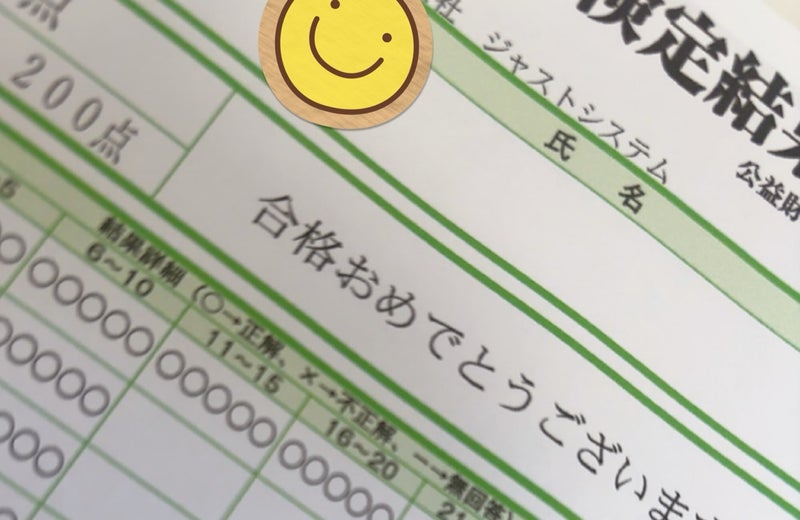 検定結
公益財
社 ジャストシステム
氏 名
点
200点
合格おめでとうございます
結果詳細（○→正解、×→不正解、－→無回答）
6～10
11～15
16～20
21
○○○○○ ○○○○○ ○○○○○
○○○○○
○○○